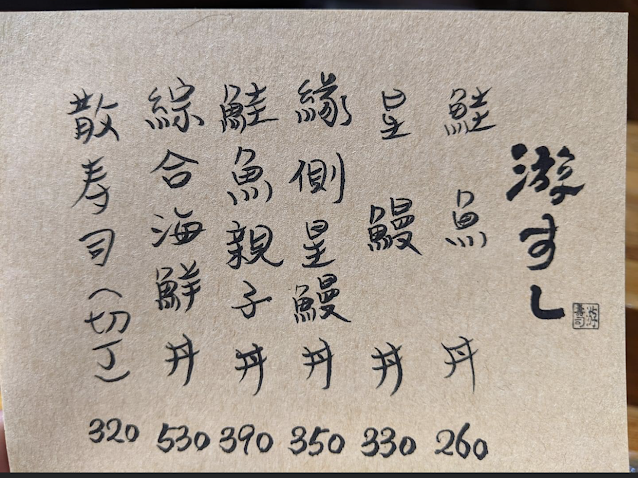 游すし
鮭魚丼 260
星鰻丼 330
緣側星鰻丼 350
鮭魚親子丼 390
綜合海鮮丼 530
散寿司(切丁) 320